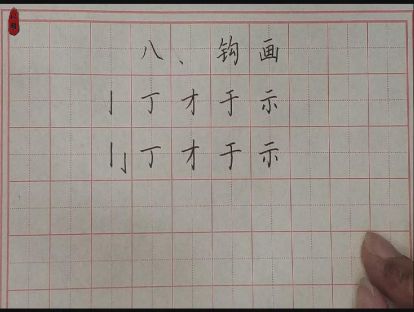 八、钩画
亅丁才于示
亅亅丁才于示